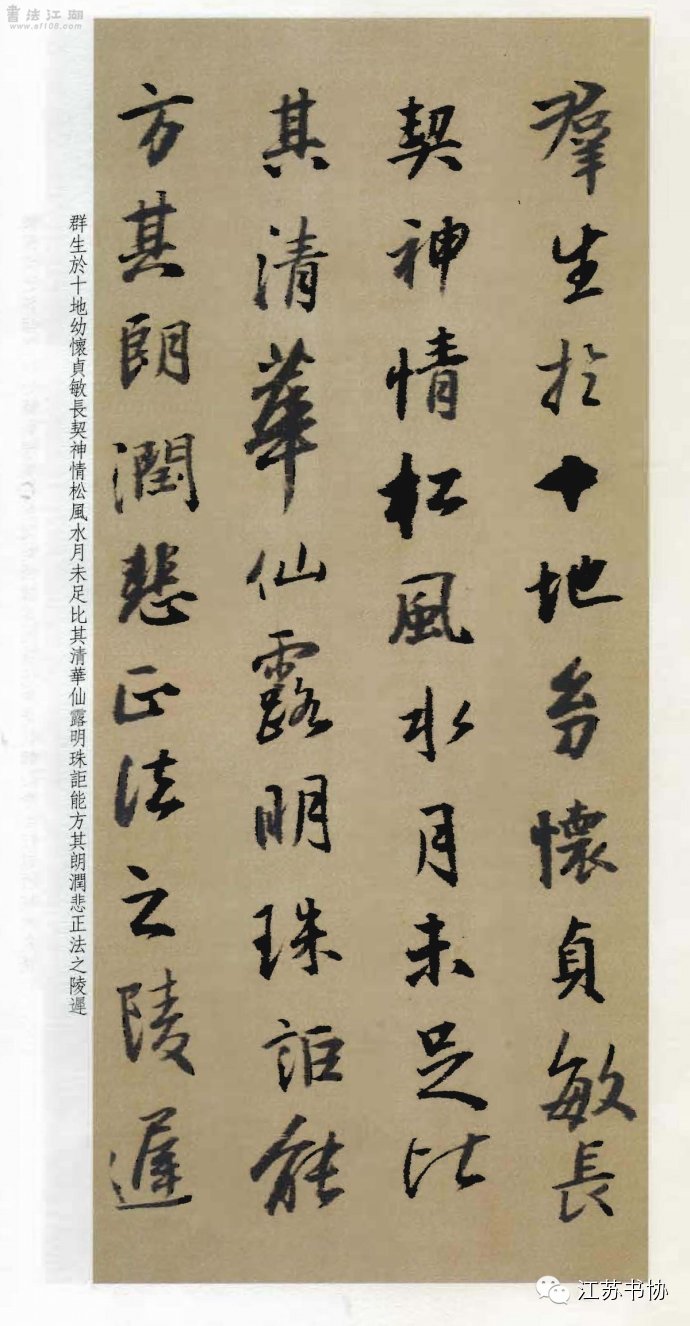 書法江湖
www.sf108.com
羣生於十地幼懷貞敏長
契神情松風水月未足比
其清華仙露明珠詎能
方其朗潤悲正法之陵遲
群生於十地幼懷貞敏長契神情松風水月未足比其清華仙露明珠詎能方其朗潤悲正法之陵遲
江苏书协